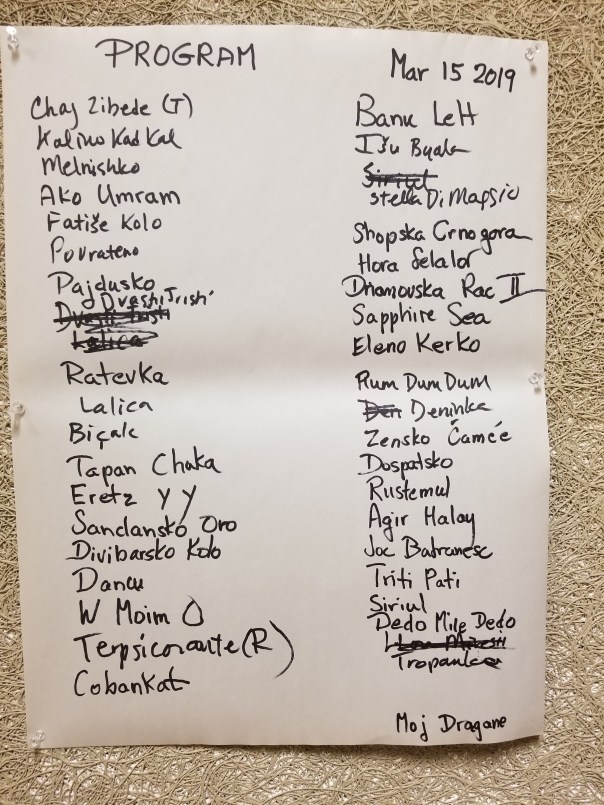 PROGRAM
Mar 15 2019
Chaj Zibede (T)
Kalino Kad Kal
Melnishko
Ako Umram
Fatiše Kolo
Povrateno
Pajdusko
Dvashi Trishi
Ratevka
Lalica
Biçak
Tapan Chaka
Eretz y y
Sandansko Oro
Divibarsko Kolo
Dancu
W Moim O
Terpsicoraute (R)
Cobankat
Banu Lelt
Išu Byala
Siriul
Stella Di Mapsio
Shopska Crnogora
Hora Felalor
Dramovska Rac II
Sapphire Sea
Eleno Kerko
Rum Dum Dum
Den Deninka
Zensko Čamče
Dospatsko
Rustemul
Agir Halay
Joc Batranesc
Triti Pati
Siriul
Dedo Mile Dedo
Tropanka
Moj Dragane